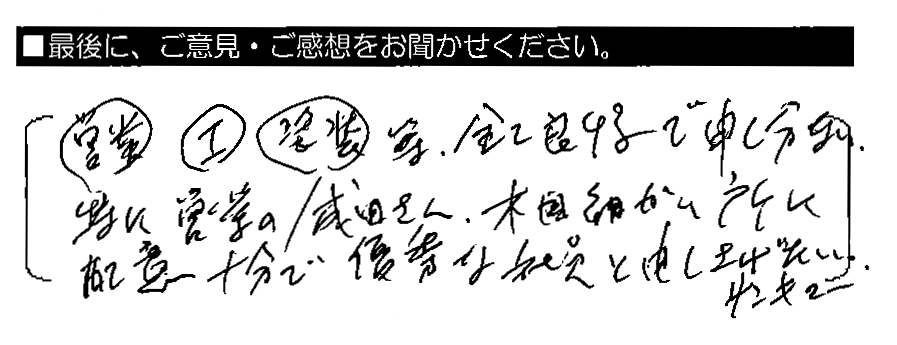 ■最後に、ご意見・ご感想をお聞かせください。
営業 工 塗装 等、全て良好で申し分ない。
特に営業の成田さん、木目細かい所に
配意十分で優秀な社員と申し上げたい。
サンキュー